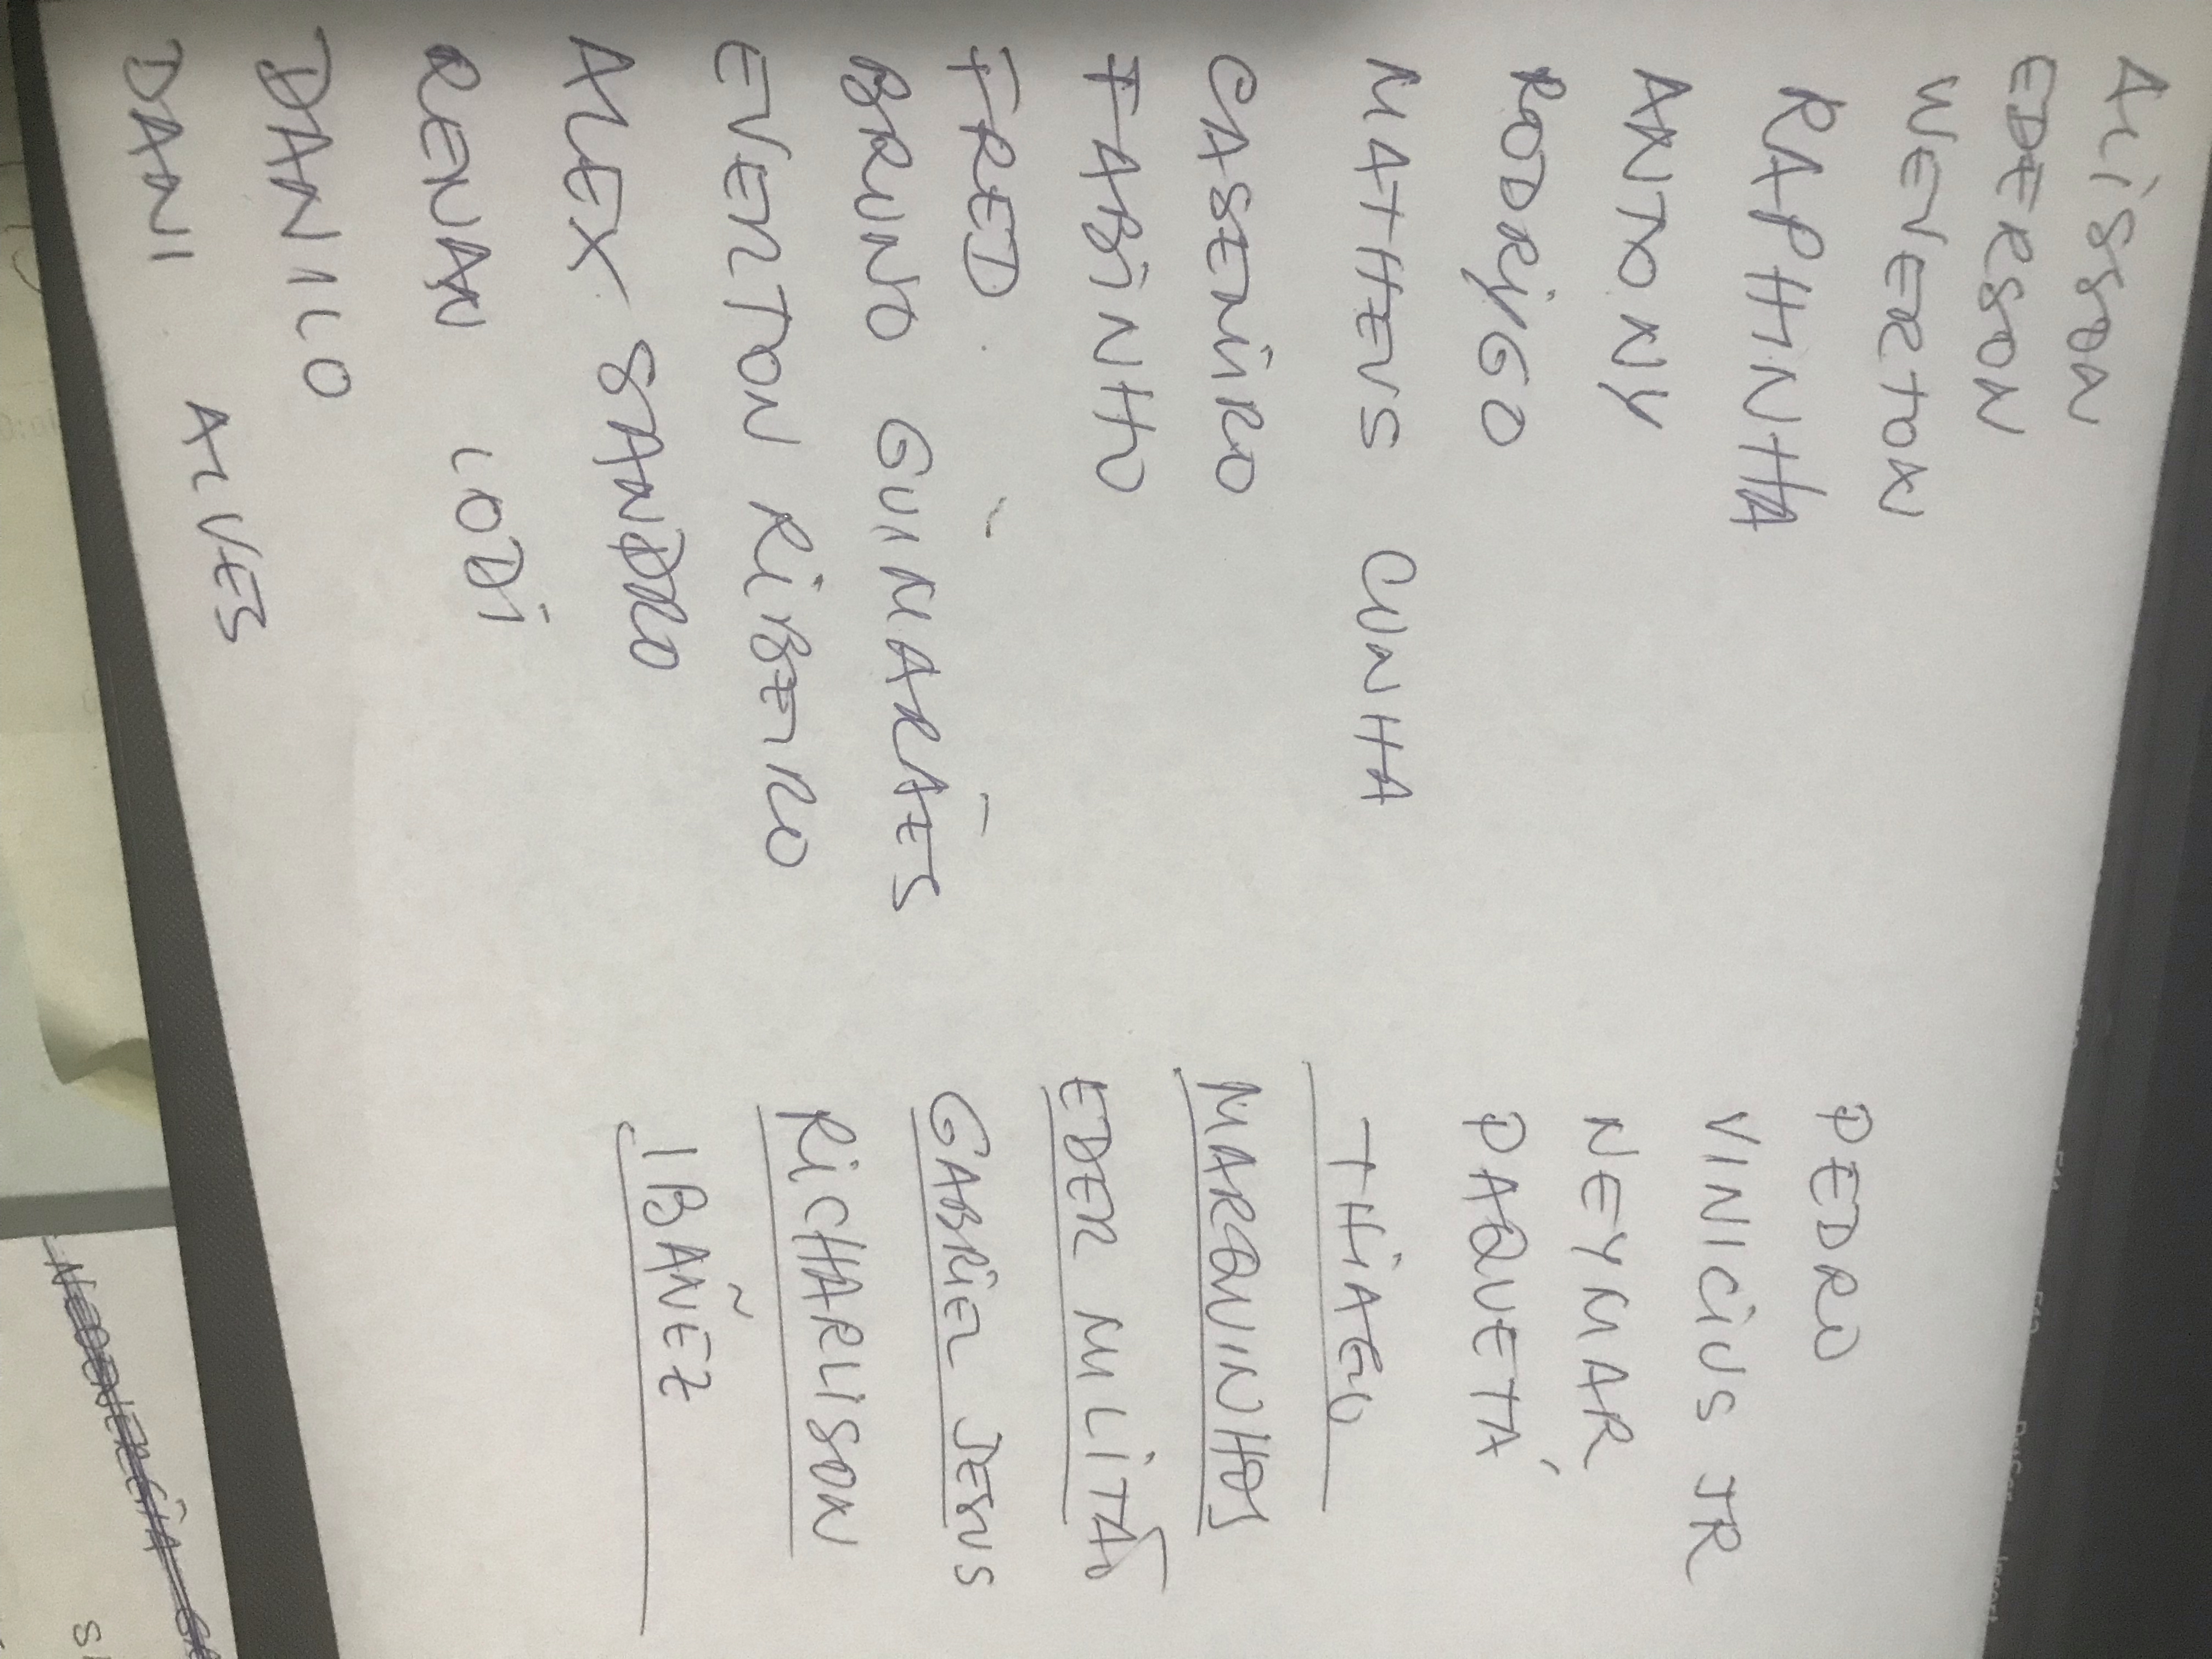 ALISSON
EDERSON
WEVERTON
RAPHINHA
ANTONY
RODRYGO
MATHEUS CUNHA
CASEMIRO
FABINHO
FRED
BRUNO GUIMARÃES
EVERTON RIBEIRO
ALEX SANDRO
RENAN LODI
DANILO
DANI ALVES
PEDRO
VINICIUS JR
NEYMAR
PAQUETÁ
THIAGO
MARQUINHOS
EDER MILITÃO
GABRIEL JESUS
RICHARLISON
IBAÑEZ